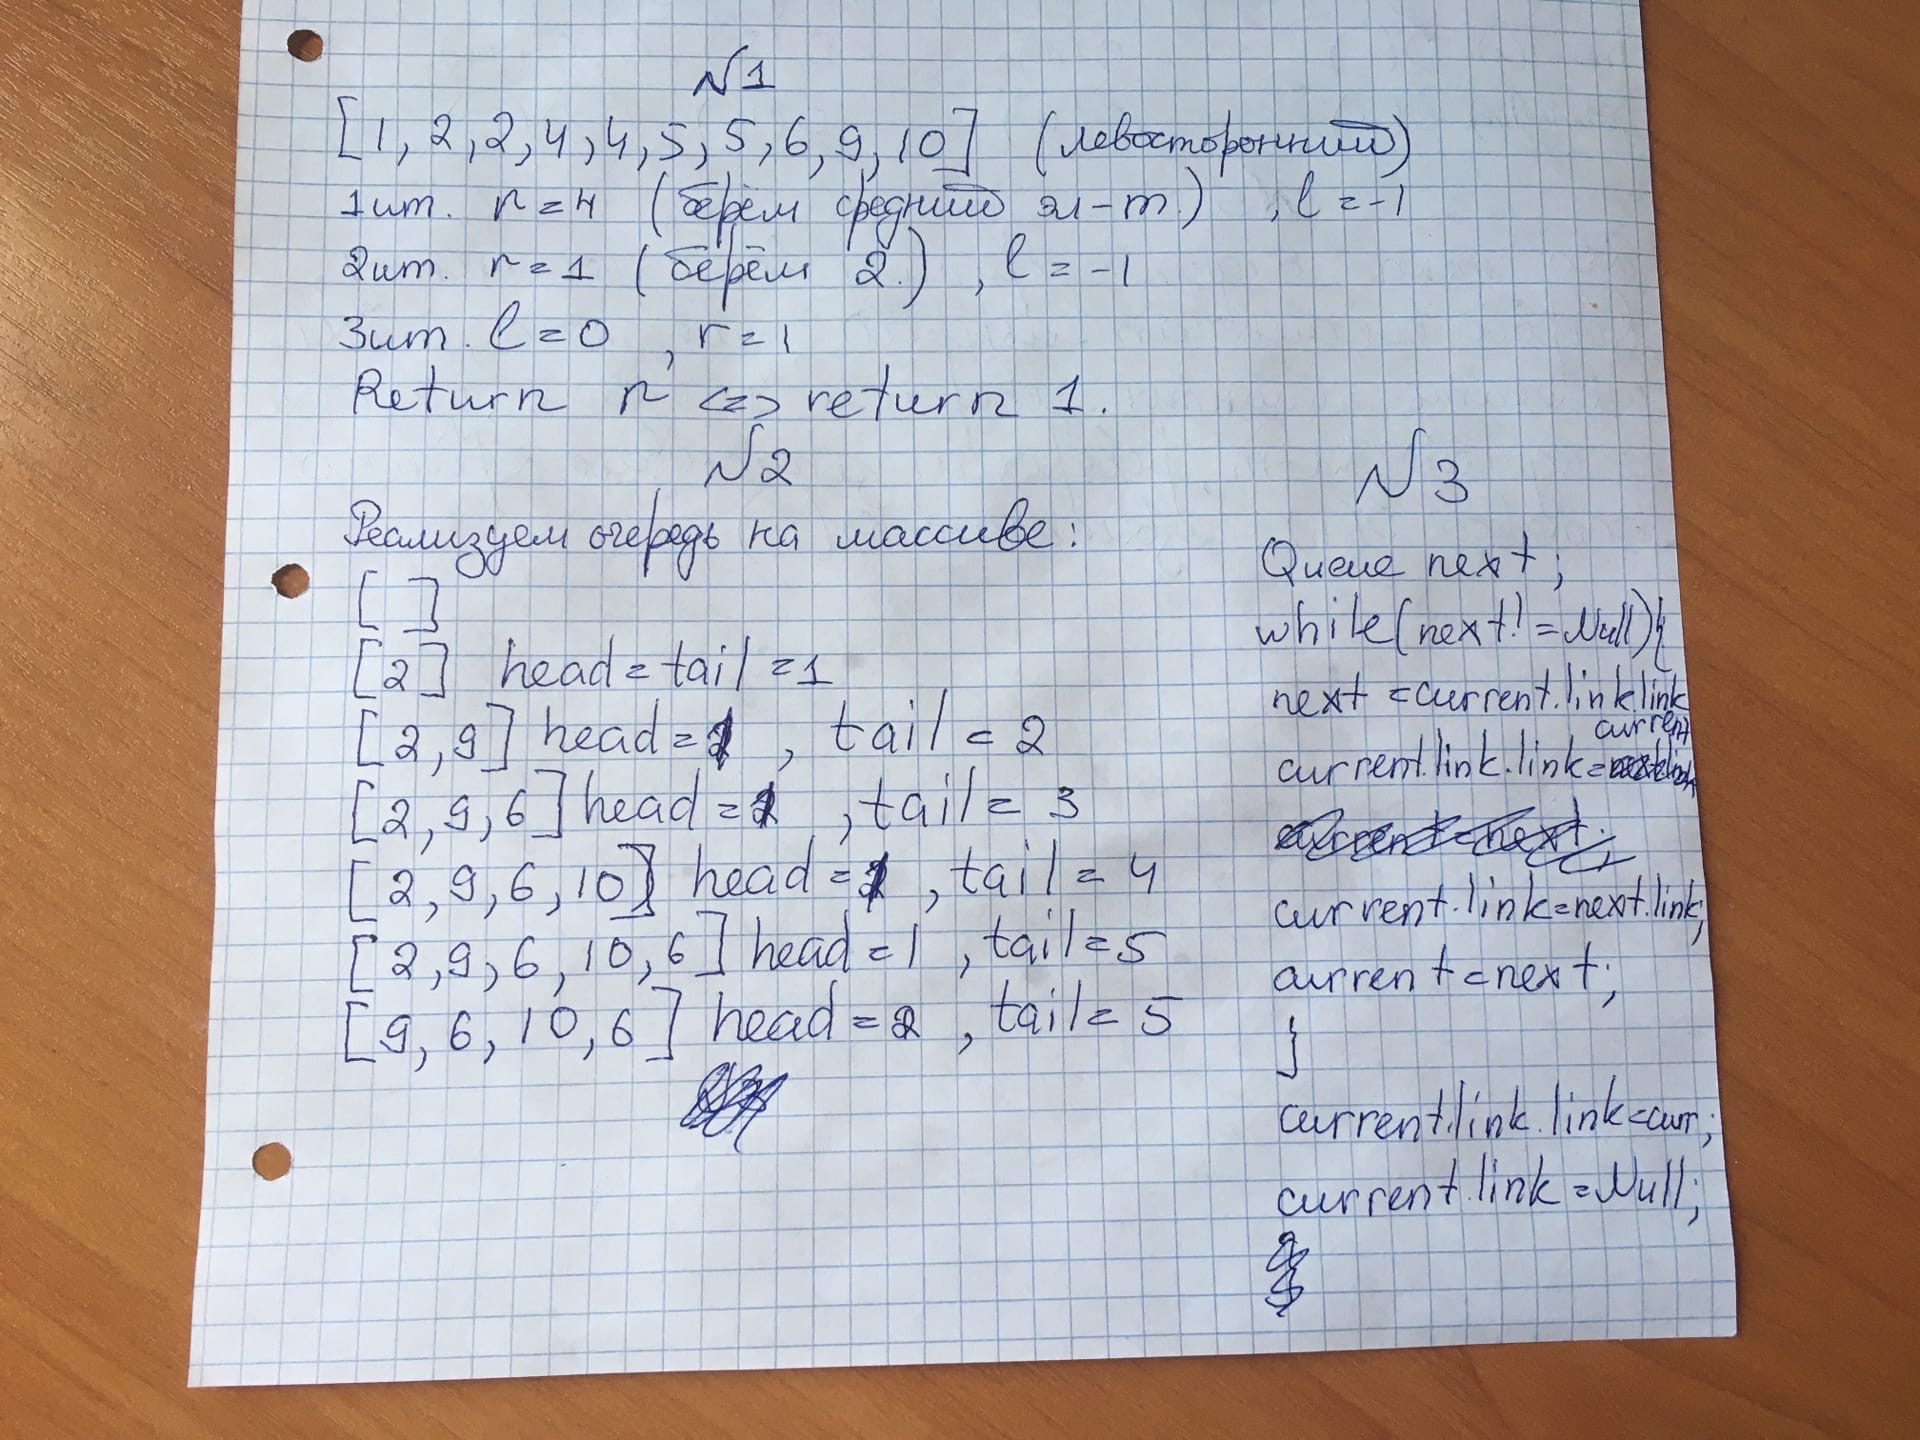 №1
[1, 2, 2, 4, 4, 5, 5, 6, 9, 10] (левосторонний)
1 ит. r = 4 (берём средний эл-т.) , l = -1
2 ит. r = 1 (берём 2.) , l = -1
3 ит. l = 0 , r = 1
Return r <=> return 1.
№2
Реализуем очередь на массиве:
[ ]
[2] head = tail = 1
[2, 9] head = 1 , tail = 2
[2, 9, 6] head = 1 , tail = 3
[2, 9, 6, 10] head = 1 , tail = 4
[2, 9, 6, 10, 6] head = 1 , tail = 5
[9, 6, 10, 6] head = 2 , tail = 5
№3
Queue next;
while(next! = Null){
next = current.link.link
current
current.link.link =
current = next;
current.link = next.link;
current = next;
}
current.link.link = curr;
current.link = Null;